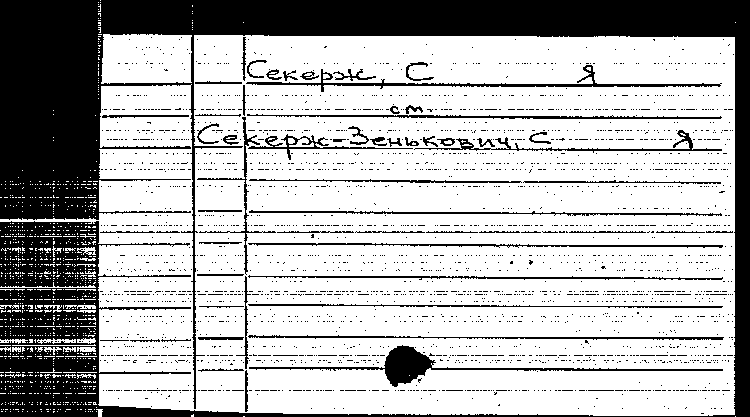 Секерж, С Я
ст.
Секерж-Зенькович, С Я